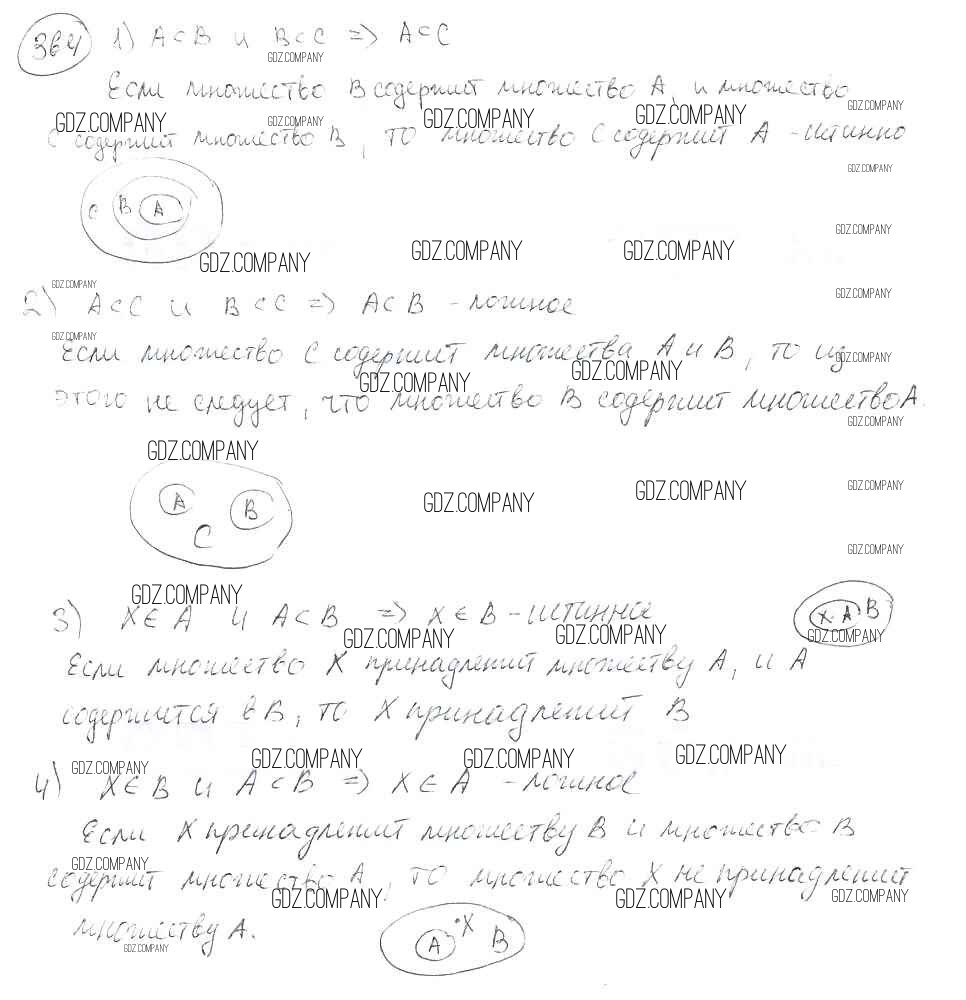 364 1) A⊂B и B⊂C ⇒ A⊂C
GDZ.COMPANY
Если множество B содержит множество A, и множество
GDZ.COMPANY GDZ.COMPANY GDZ.COMPANY GDZ.COMPANY GDZ.COMPANY
C содержит множество B, то множество C содержит A - истинно
GDZ.COMPANY
C B A
GDZ.COMPANY
GDZ.COMPANY GDZ.COMPANY GDZ.COMPANY
GDZ.COMPANY GDZ.COMPANY
2) A⊂C и B⊂C ⇒ A⊂B - ложное
GDZ.COMPANY
Если множество C содержит множества A и B, то из
GDZ.COMPANY GDZ.COMPANY GDZ.COMPANY
этого не следует, что множество B содержит множество A.
GDZ.COMPANY
GDZ.COMPANY
A B C
GDZ.COMPANY GDZ.COMPANY GDZ.COMPANY
GDZ.COMPANY
GDZ.COMPANY
3) X∈A и A⊂B ⇒ X∈B - истинное
X A B
GDZ.COMPANY GDZ.COMPANY GDZ.COMPANY
Если множество X принадлежит множеству A, и A
содержится в B, то X принадлежит B
GDZ.COMPANY GDZ.COMPANY GDZ.COMPANY GDZ.COMPANY
4) X∈B и A⊂B ⇒ X∈A - ложное
Если X принадлежит множеству B и множество B
GDZ.COMPANY
содержит множество A, то множество X не принадлежит
GDZ.COMPANY GDZ.COMPANY GDZ.COMPANY
множеству A.
GDZ.COMPANY
A X B